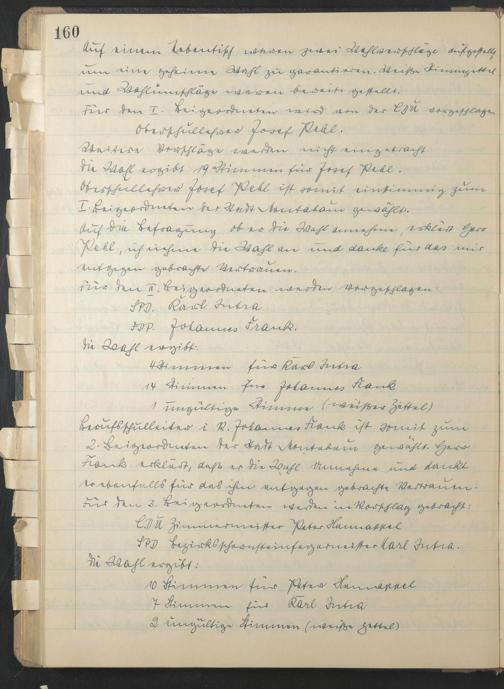 160
Auf einem Nebentisch waren zwei Wahlverschläge aufgestellt,
um eine geheime Wahl zu garantieren. Weiße Stimmzettel
und Wahlumschläge waren bereits gestellt.
Für den I. Beigeordneten wird von der CDU vorgeschlagen
Oberschullehrer Josef Kehl.
Weitere Vorschläge werden nicht eingebracht
Die Wahl ergibt 19 Stimmen für Josef Kehl.
Oberschullehrer Josef Kehl ist somit einstimmig zum
I. Beigeordneten der Stadt Montabaur gewählt.
Auf die Befragung ob er die Wahl annehme, erklärt Herr
Kehl, ich nehme die Wahl an und danke für das mir
entgegen gebrachte Vertrauen.
Für den II. Beigeordneten werden vorgeschlagen
SPD. Karl Intra
FDP. Johannes Frank.
Die Wahl ergibt:
4 Stimmen für Karl Intra
14 Stimmen für Johannes Frank
1 ungültige Stimme (weißer Zettel)
Berufsschulleiter i. R. Johannes Frank ist somit zum
2. Beigeordneten der Stadt Montabaur gewählt. Herr
Frank erklärt, daß er die Wahl annehme und dankt
er ebenfalls für das ihm entgegen gebrachte Vertrauen.
Für den 3. Beigeordneten werden in Vorschlag gebracht:
CDU Zimmermeister Peter Hannappel
SPD Bezirksschornsteinfegermeister Karl Intra.
Die Wahl ergibt:
10 Stimmen für Peter Hannappel
7 Stimmen für Karl Intra
2 ungültige Stimmen (weiße Zettel)